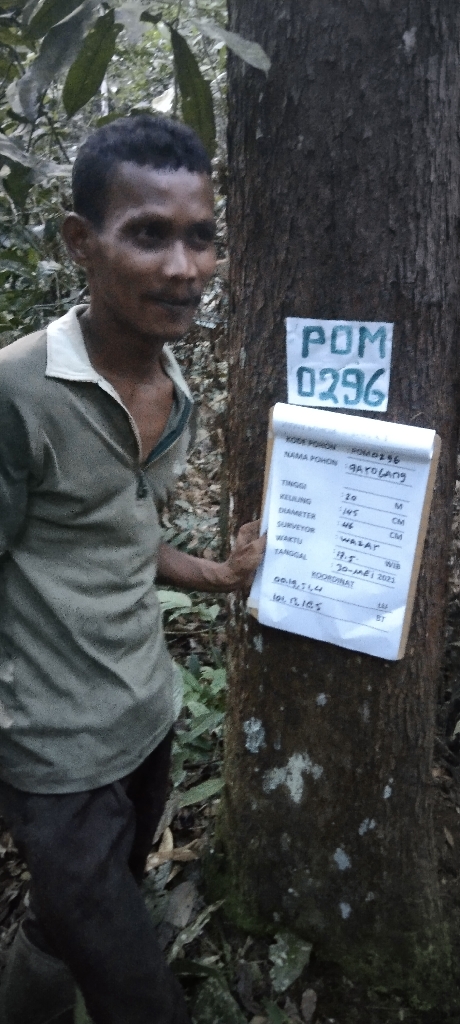 POM
0296
KODE POHON : POM0296
NAMA POHON : GAROGANG
TINGGI : 20 M
KELILING : 145 CM
DIAMETER : 46 CM
SURVEYOR : WAZAT
WAKTU : 17.5 WIB
TANGGAL : 30-MEI 2021
KOORDINAT
00.19.51,4 LU
101.13.18.5 BT